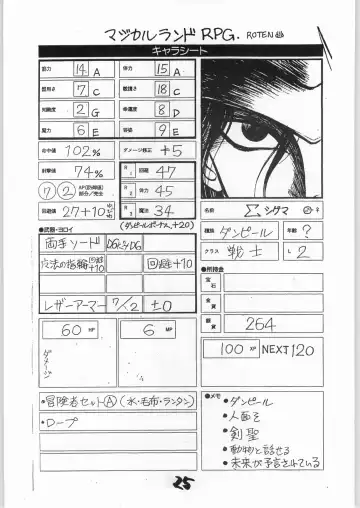 マジカルランドRPG. ROTEN
キャラシート
筋力 14 A 体力 15 A
器用さ 7 C 敏捷さ 18 C
知機度 2 G 幸運度 8 D
魔力 6 E 容姿 9 E
命中値 102% ダメージ修正 +5
射撃値 74% R/1 回避 47
7 2 AP(防御値) 部分/完全 R/2 体力 45
回避値 27+10 R/3 魔法 34
(ダンピールボーナス,+20)
名前 Σシグマ ♂ ♀
種族 ダンピール 年齢 ?
クラス 戦士 L 2
●武器・ヨロイ
両手ソード
の指輪 回避+10 回避+10
レザーアーマー 7/2 ±0
●所持金
宝石
金貨
銀貨 264
60 HP 6 MP
ダメージ
100 XP NEXT 120
・冒険者セットⒶ(水・毛布・ランタン)
・ロープ
●メモ
・ダンピール
・人面を
・剣聖
・動物と話せる
・未来が予言されている
25